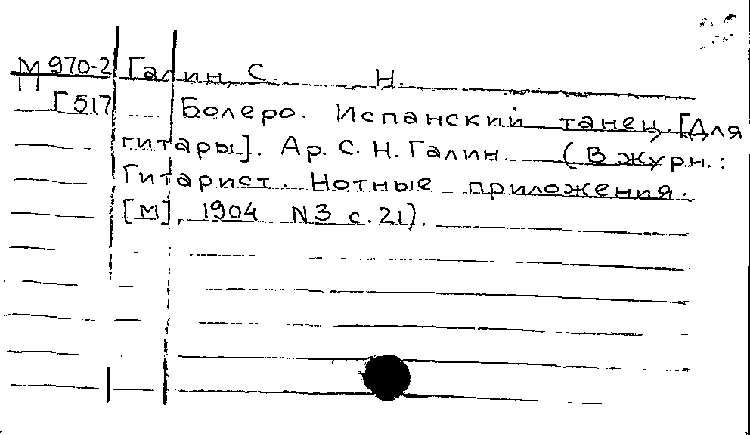 М 970-2 Галин, С. Н.
Г 517 Болеро. Испанский танец. [Для
гитары]. Ар. С. Н. Галин. (В журн.:
Гитарист. Нотные приложения.
[М], 1904 N3 с. 21).